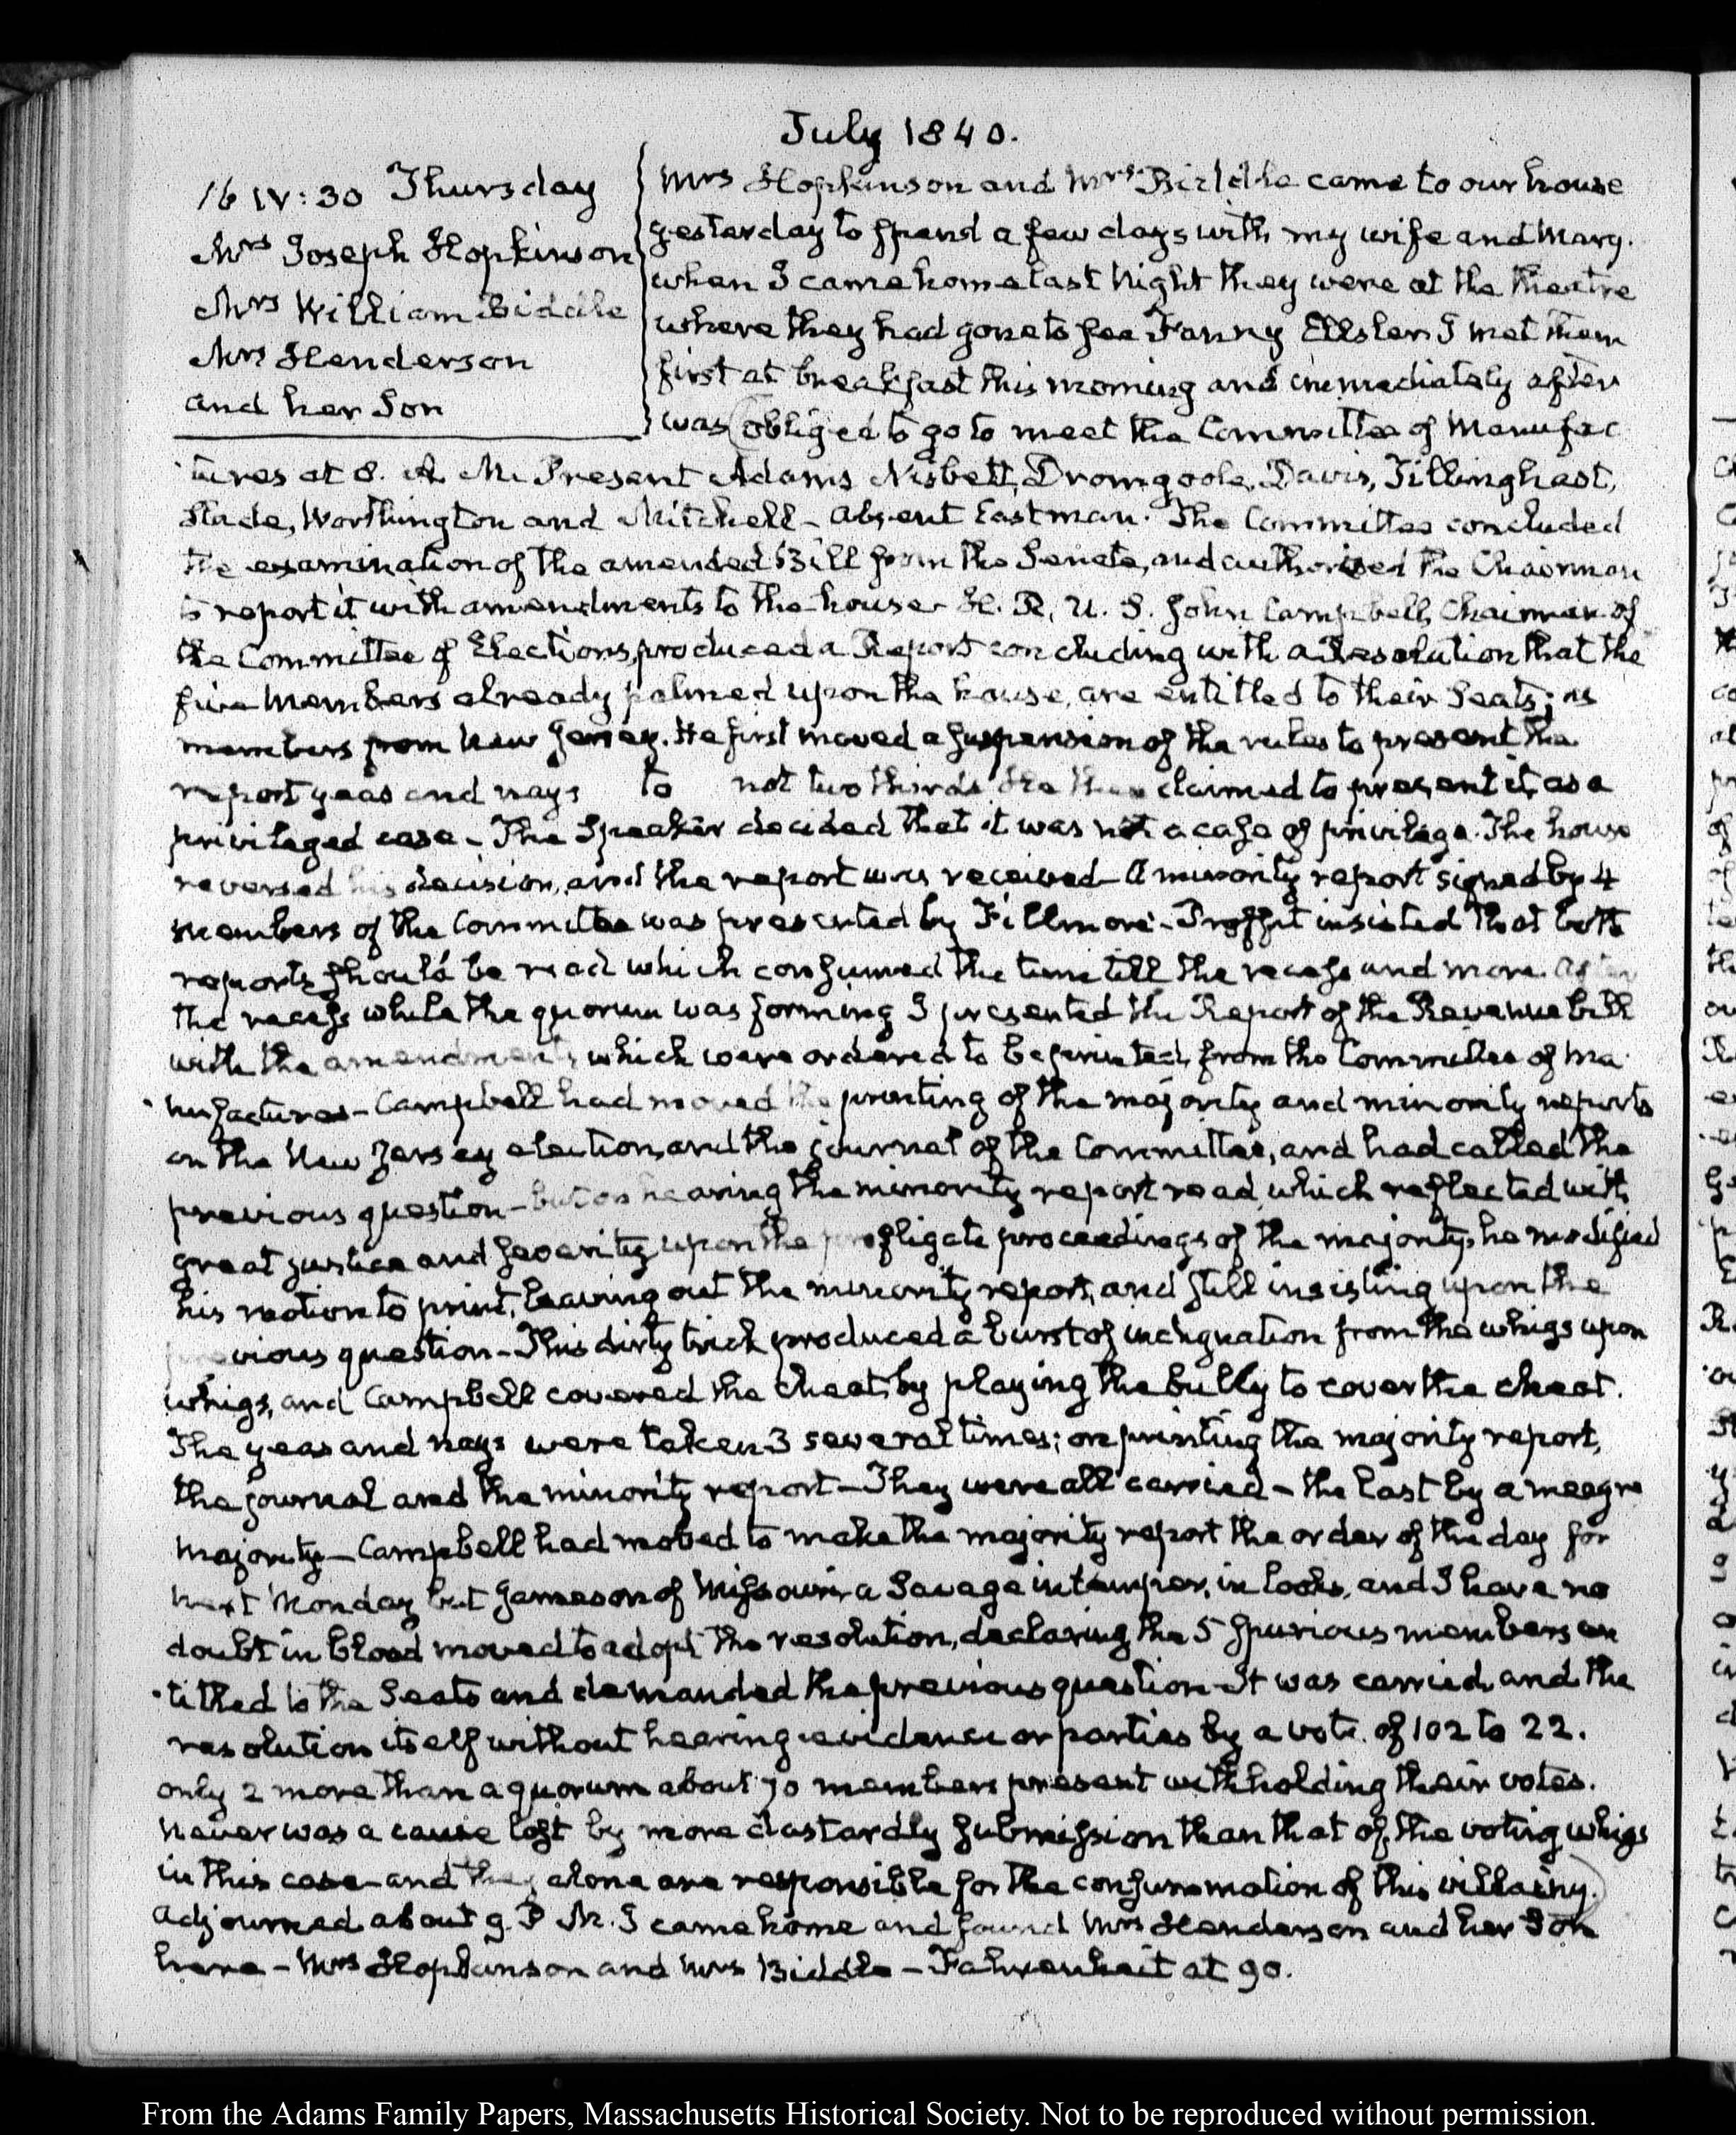 July 1840.
16 IV:30 Thursday
Mrs Joseph Hopkinson
Mrs William Biddle
Mrs Henderson
and her Son
Mrs Hopkinson and Mrs Biddle came to our house
yesterday to spend a few days with my wife and Mary.
when I came home last Night they were at the theatre
where they had gone to see Fanny Ellsler I met them
first at breakfast this morning and immediately after
was obliged to go to meet the Committee of Manufac
tures at 8. A. M. Present Adams Nisbett, Dromgoole, Davis, Tillinghast,
Slade, Worthington and Mitchell - absent Eastman. The Committee concluded
the examination of the amended Bill from the Senate, and authorised the Chairman
to report it with amendments to the house - H. R. U. S. John Campbell, Chairman of
the Committee of Elections, produced a Report concluding with a Resolution that the
five Members already palmed upon the house, are entitled to their Seats; as
members from New Jersey. He first moved a suspension of the rules to present the
report yeas and nays to not two thirds He then claimed to present it, as a
privileged case - The Speaker decided that it was not a case of privilege. The house
reversed his decision, and the report was received - A minority report signed by 4
members of the Committee was presented by Fillmore - Proffit insisted that both
reports should be read which consumed the time till the recess and more. After
the recess while the quorum was forming I presented the Report of the Revenue bill
with the amendments, which were ordered to be printed, from the Committee of Ma
nufactures - Campbell had moved the printing of the majority and minority reports
on the New Jersey election, and the journal of the Committee, and had called the
previous question - but on hearing the minority report read, which reflected with
great justice and severity upon the profligate proceedings of the majority, he modified
his motion to print, leaving out the minority report, and still insisting upon the
previous question - This dirty trick produced a burst of indignation from the whigs upon
whigs, and Campbell covered the cheat, by playing the bully to cover the cheat.
The yeas and nays were taken 3 several times; on printing the majority report,
the journal and the minority report - They were all carried - the last by a meagre
majority - Campbell had moved to make the majority report the order of the day for
next Monday but Jameson of Missouri, a Savage in temper, in looks, and I have no
doubt in blood moved to adopt the resolution, declaring the 5 spurious members en
titled to the Seats and demanded the previous question - It was carried, and the
resolution itself without hearing evidence or parties by a vote of 102 to 22.
only 2 more than a quorum about 70 members present withholding their votes.
Never was a cause lost by more dastardly submission than that of the voting whigs
in this case - and they alone are responsible for the consummation of this villainy.
Adjourned about 9. P. M. I came home and found Mrs Henderson and her Son
here - Mrs Hopkinson and Mrs Biddle - Fahrenheit at 90.
From the Adams Family Papers, Massachusetts Historical Society. Not to be reproduced without permission.